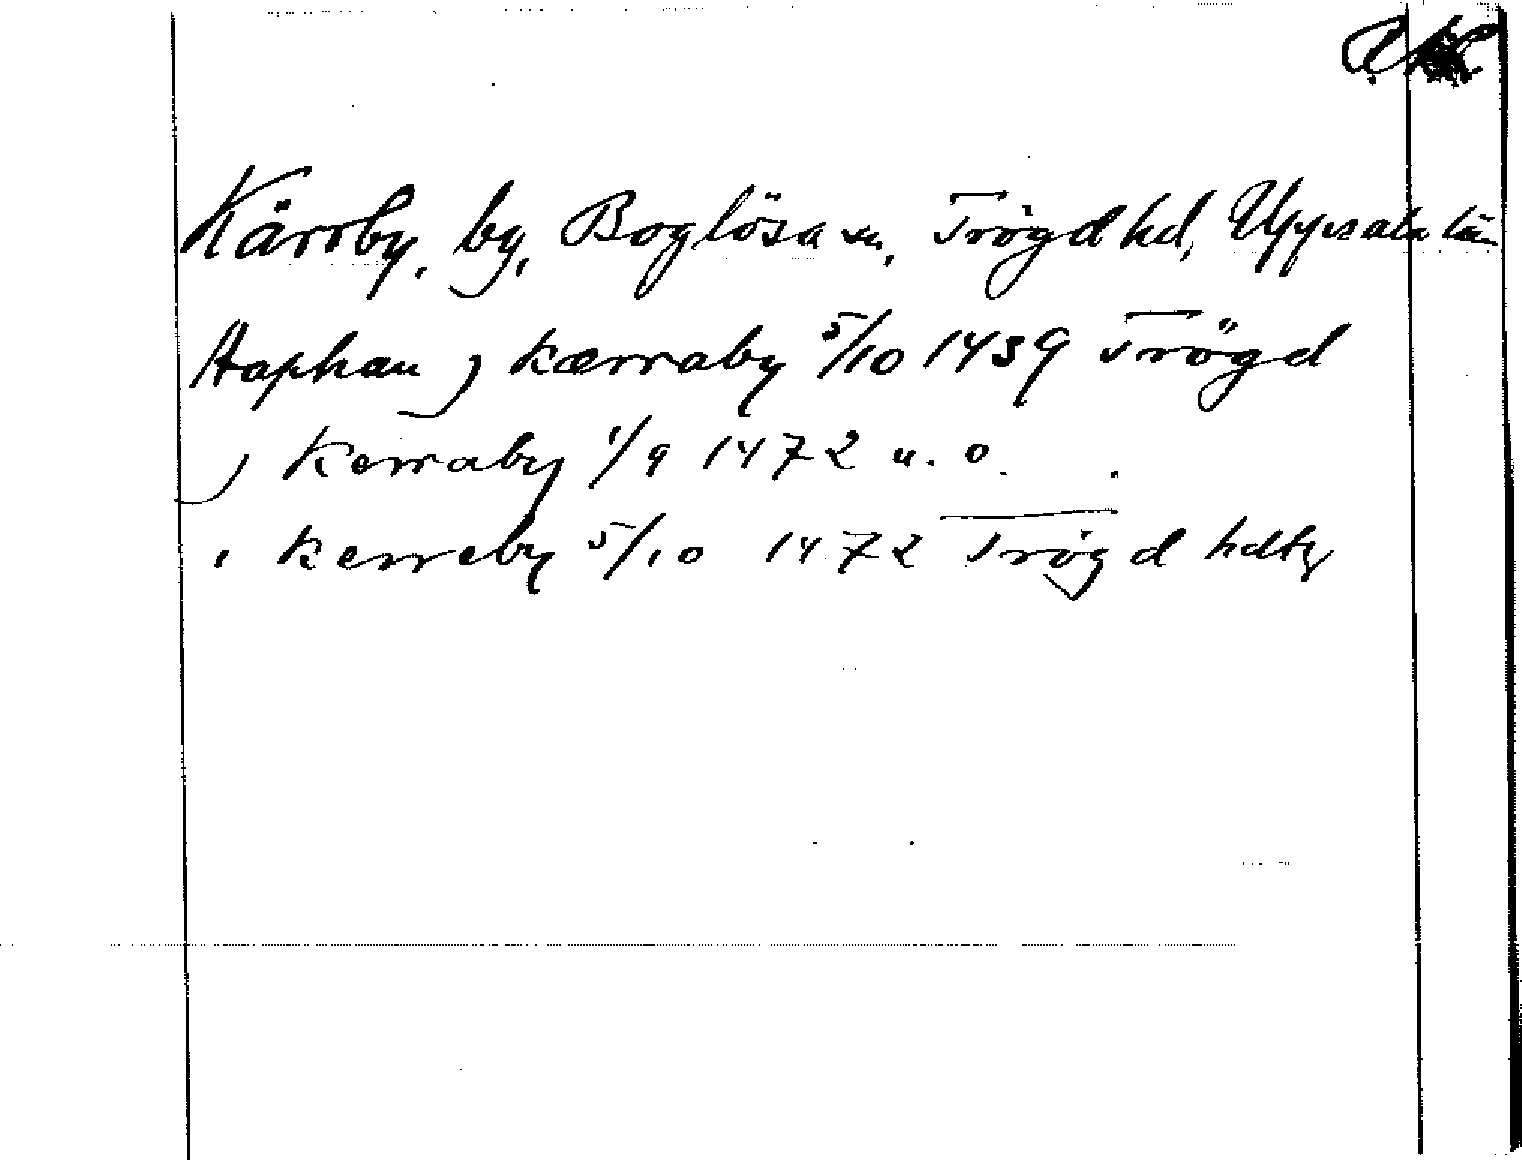 Kärrby, by, Boglösa sn, Trögd hd, Uppsala län
Staphan j kærraby 5/10 1439 Trögd
j kerraby 1/9 1472 u. o.
i kerreby 5/10 1472 Trögd hdtg